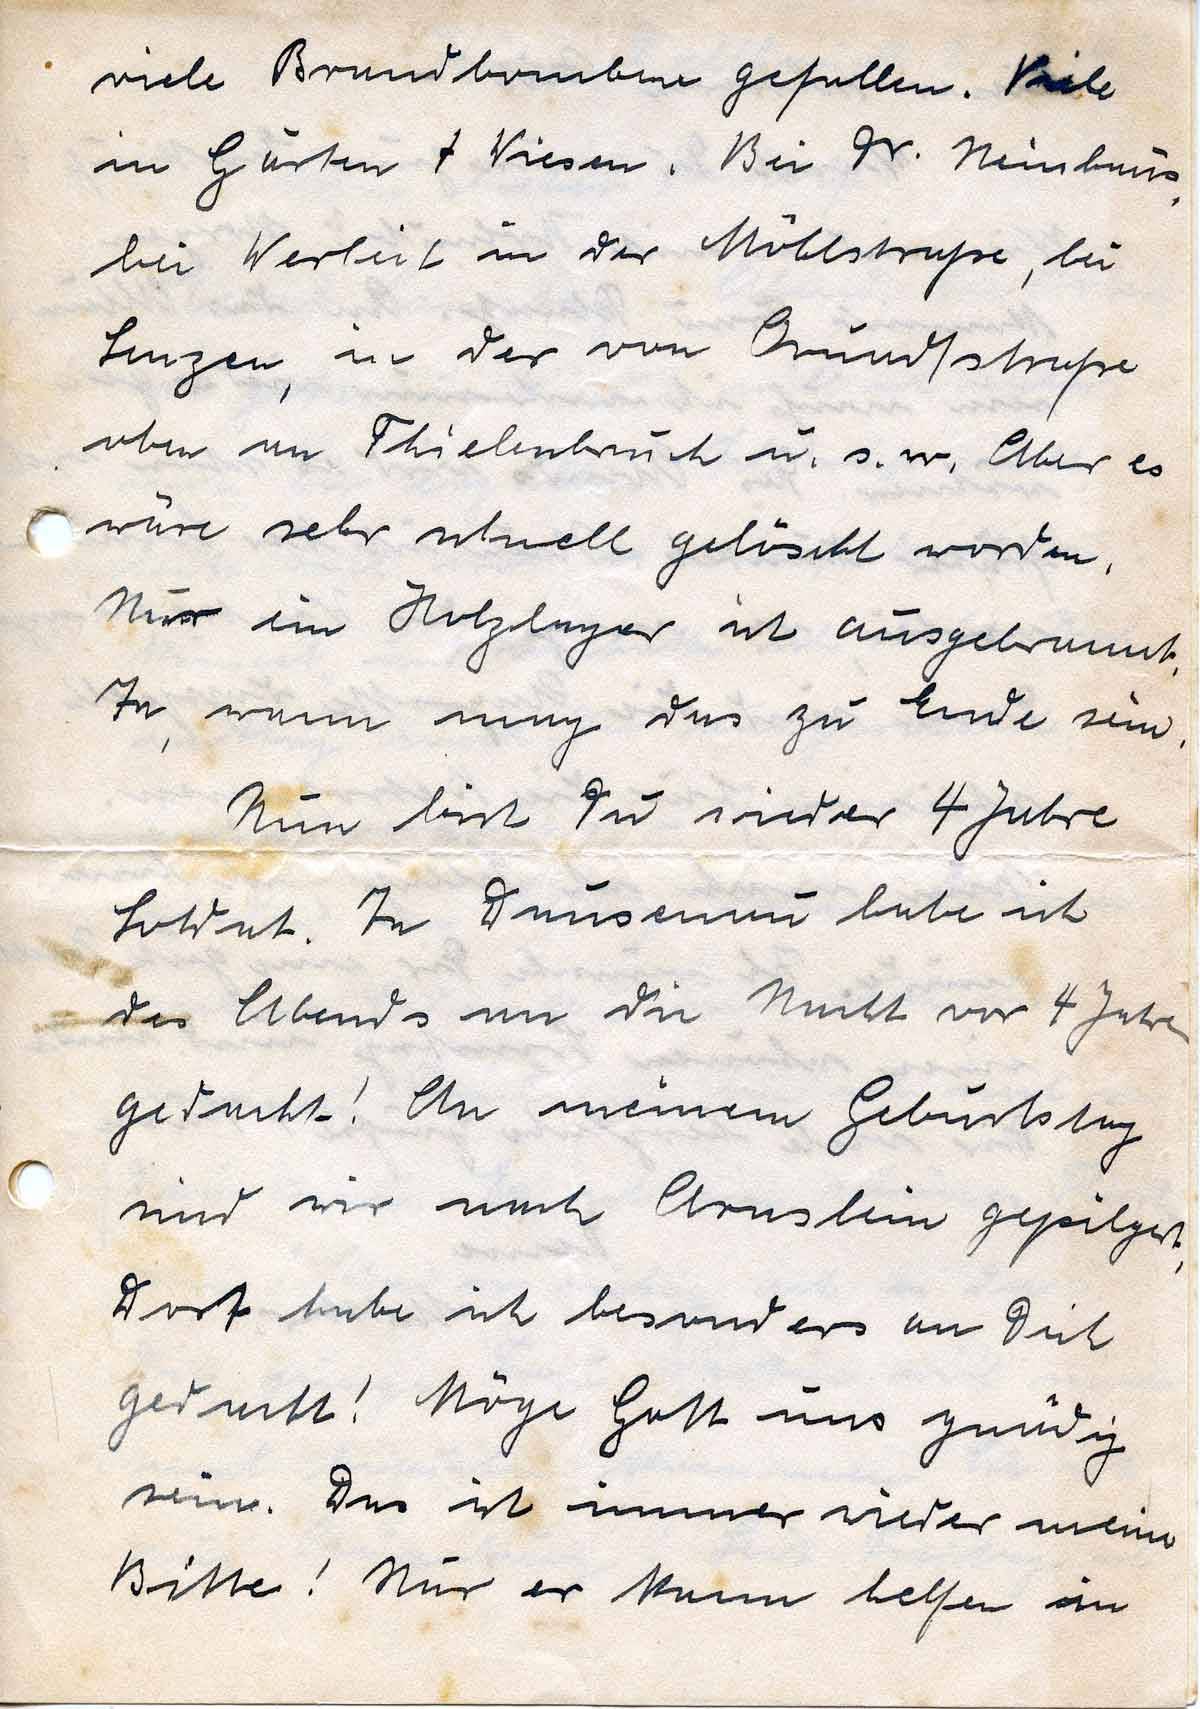 viele Brandbomben gefallen. Viele
in Gärten + Wiesen. Bei Dr. Neinhaus,
bei Werleit in der Möhlstraße, bei
Lenzen, in der von Quadtstraße
oben am Thielenbruch u. s. w. Aber es
wäre sehr schnell gelöscht worden.
Nur ein Holzlager ist ausgebrannt.
Ja, wann mag das zu Ende sein.
Nun bist Du wieder 4 Jahre
Soldat. In Dausenau habe ich
des Abends an die Nacht vor 4 Jahren
gedacht! An meinem Geburtstag
sind wir nach Arnstein gepilgert,
Dort habe ich besonders an Dich
gedacht! Möge Gott uns gnädig
sein. Das ist immer wieder meine
Bitte! Nur er kann helfen in